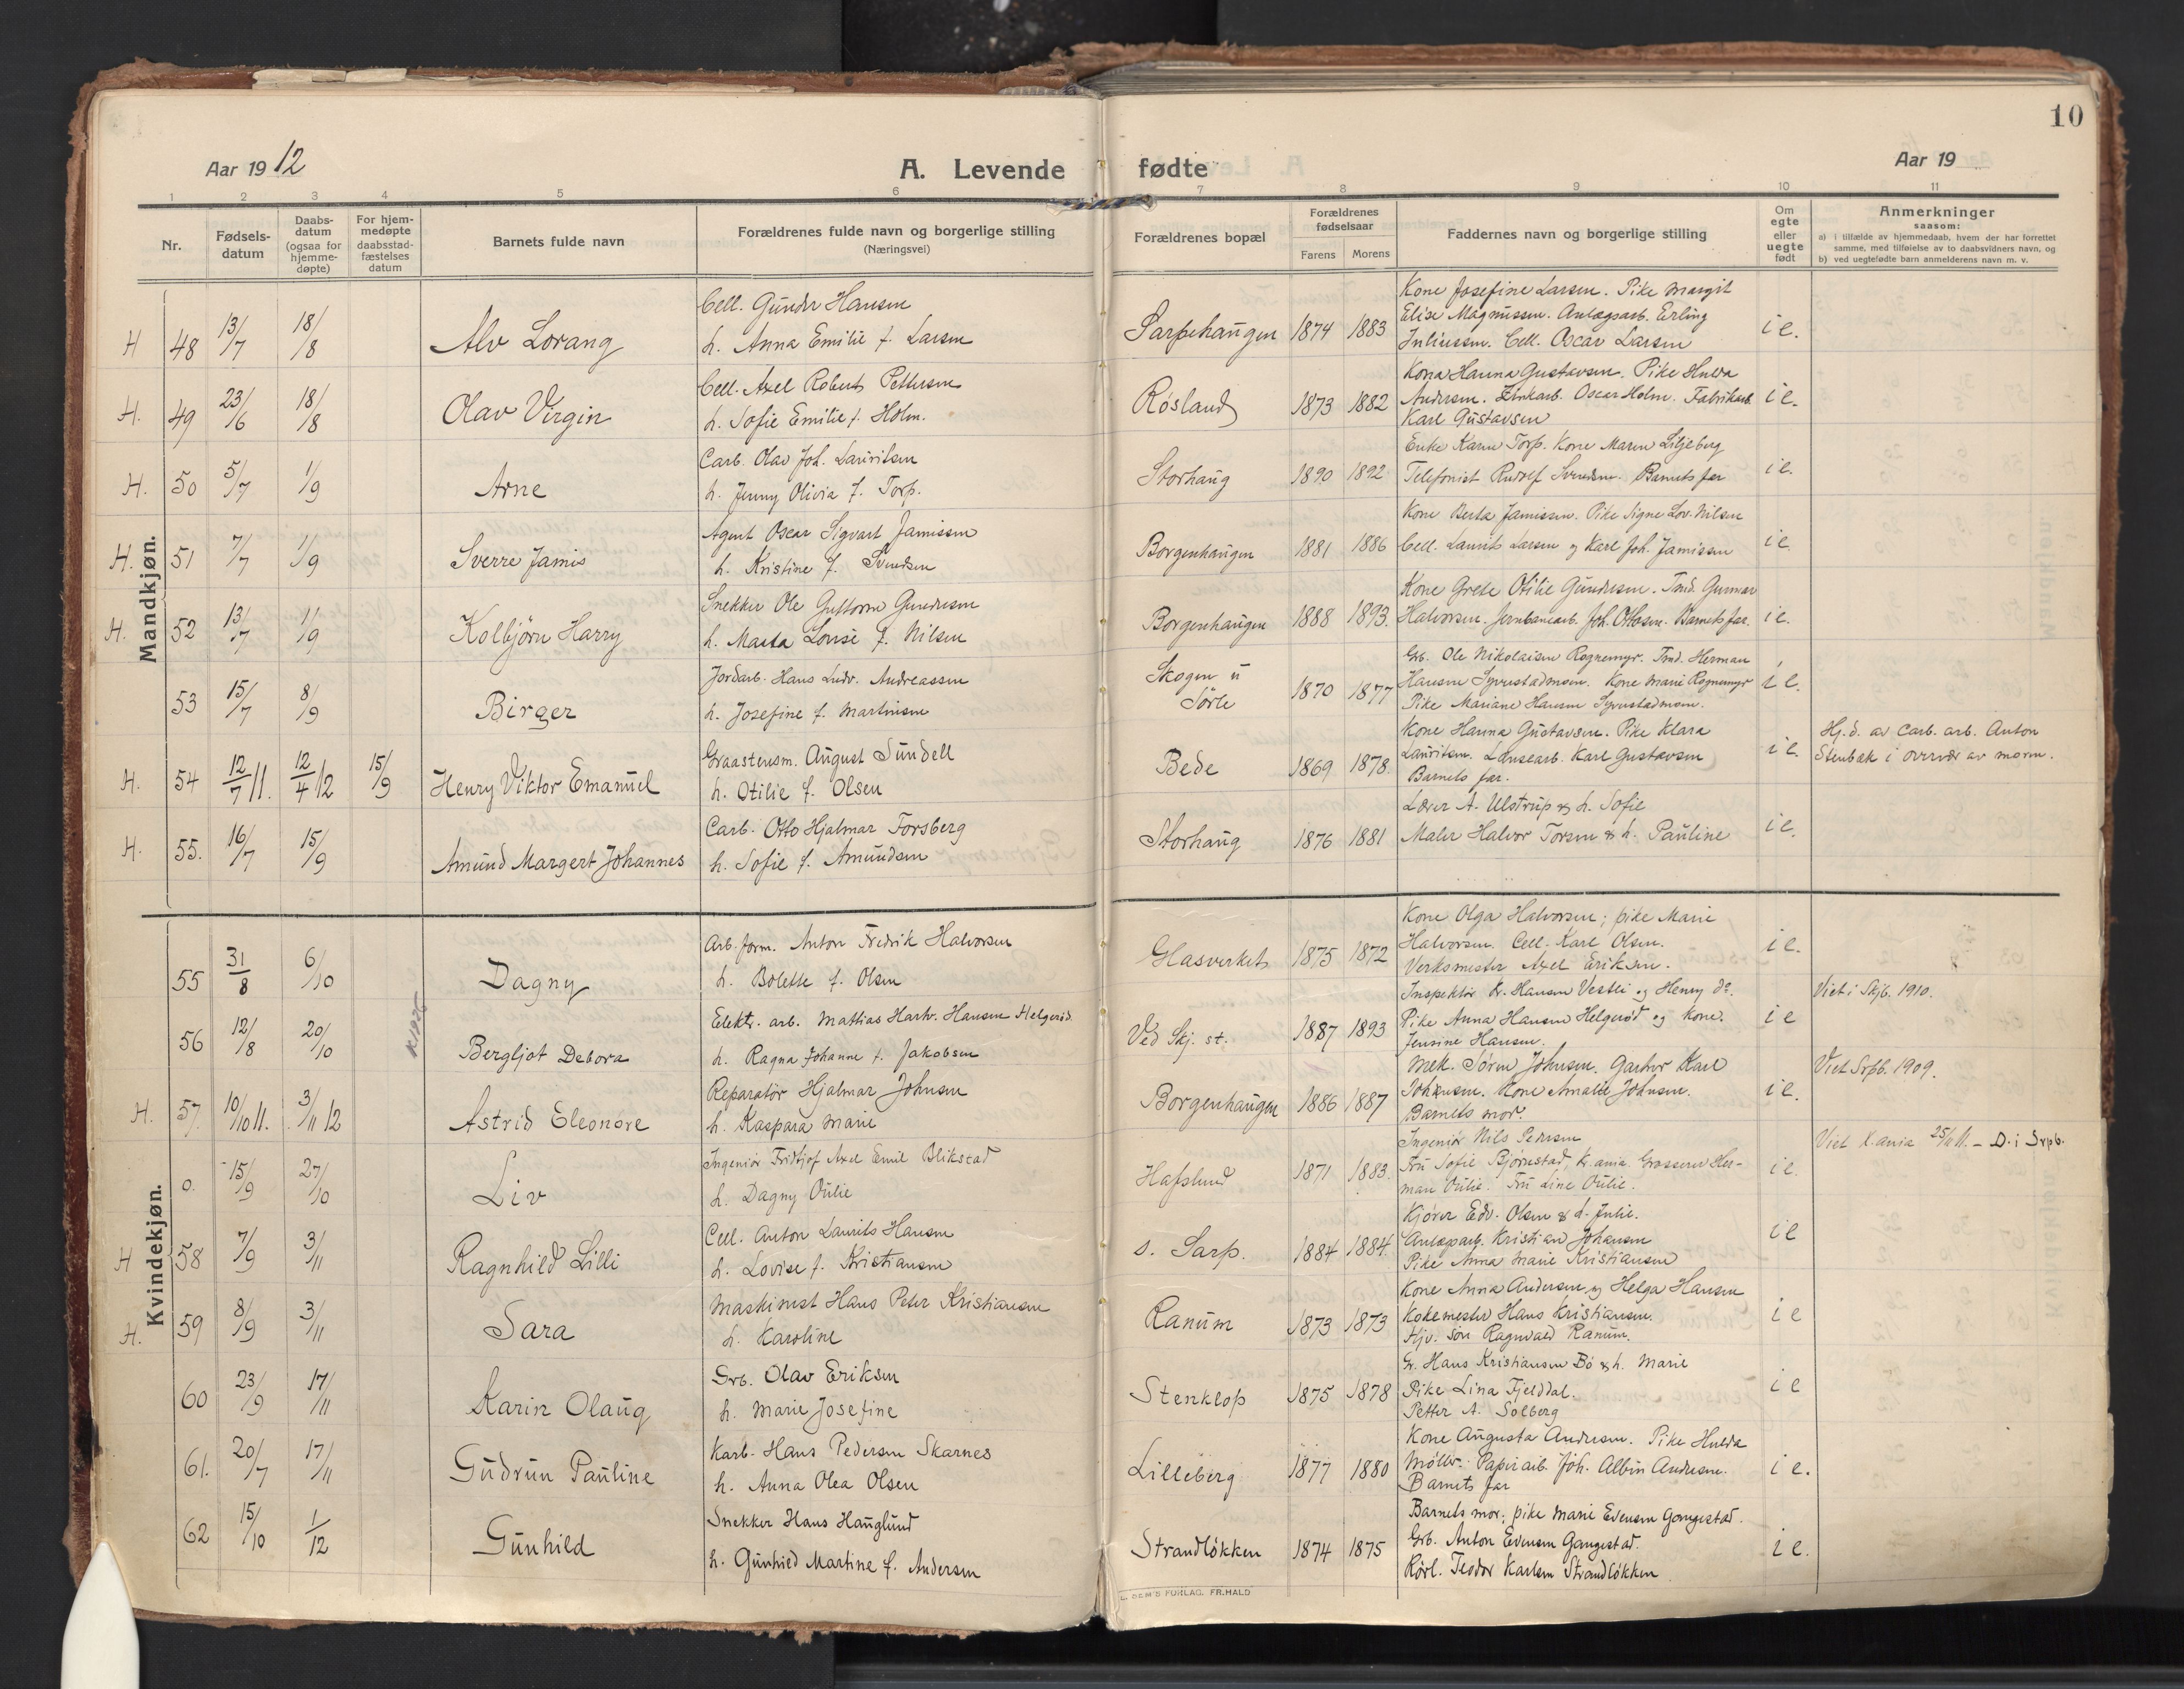 10
Aar 1912
A. Levende fødte
Aar 19
1 2 3 4 5 6 7 8 9 10 11
Nr.
Fødsels-
datum
Daabs-
datum
(ogsaa for
hjemme-
døpte)
For hjem-
medøpte
daabsstad-
fæstelses
datum
Barnets fulde navn
Forældrenes fulde navn og borgerlige stilling
(Næringsvei)
Forældrenes bopæl
Forældrenes
fødselsaar
Farens Morens
Faddernes navn og borgerlige stilling
Om
egte
eller
uegte
født
Anmerkninger
saasom:
a) i tilfælde av hjemmedaab, hvem der har forrettet
samme, med tilføielse av to daabsvidners navn, og
b) ved uegtefødte barn anmelderens navn m. v.
Mandkjøn.
H 48 13/7 18/8 Alv Lorang
Cell. Gunder Hansen
h. Anna Emilie f. Larsen
Sarpehaugen 1874 1883
Kone Josefine Larsen. Pike Margit
Elise Magnussen. Anlægsarb. Erling
Juliussen. Cell. Oscar Larsen
i e.
H. 49 23/6 18/8 Olav Virgin
Cell. Axel Robert Pettersen
h. Sofie Emilie f. Holm.
Røsland 1873 1882
Kona Hanna Gustavsen. Pike Hulda
Andersen. Zinkarb. Oscar Holm. Fabrikarb.
Karl Gustavsen
i e.
H. 50 5/7 1/9 Arne
Carb. Olav Joh. Lauritsen
h. Jenny Olivia f. Torp.
Storhaug 1890 1892
Enke Karen Torp. Kone Maren Liljeberg
Telefonist Rudolf Svendsen. Barnets far
i e.
H. 51 7/7 1/9 Sverre Jamis
Agent Oscar Sigvart Jamissen
h. Kristine f. Svendsen
Borgenhaugen 1881 1886
Kone Berta Jamissen. Pike Signe Lov. Nilsen
Cell. Laurits Larsen og Karl Joh. Jamissen
i e.
H. 52 13/7 1/9 Kolbjørn Harry
Snekker Ole Guttorm Gundersen
h. Marta Lovise f. Nilsen
Borgenhaugen 1888 1893.
Kone Grete Otilie Gundersen. Tmd. Gunnar
Halvorsen. Jernbanearb. Joh. Ottosen. Barnets far.
i e.
53 15/7 8/9 Birger
Jordarb. Hans Ludv. Andreassen
h. Josefine f. Martinsen
Skogen u
Sørle 1870 1877
Grb. Ole Nikolaisen Rognemyr. Tmd. Herman
Hansen Syverstadmoen. Kone Marie Rognemyr
Pike Mariane Hansen Syverstadmoen.
i e.
H. 54 12/7 11. 12/4 12 15/9 Henry Viktor Emanuel
Graastensm. August Sundell
h. Otilie f. Olsen
Bede 1869 1878.
Kone Hanna Gustavsen. Pike Klara
Lauritsen. Lænsearb. Karl Gustavsen
Barnets far.
i e.
Hj.d. av Carb. arb. Anton
Stenbæk i overvær av moren.
H. 55. 16/7 15/9 Amund Margert Johannes
Carb. Otto Hjalmar Forsberg
h. Sofie f. Amundsen
Storhaug 1876 1881
Lærer A. Ulstrup & h. Sofie
Maler Halvor Torsen & h. Pauline
i e.
Kvindekjøn.
55 31/8 6/10 Dagny
Arb. form. Anton Fredrik Halvorsen
h. Bolette f. Olsen
Glasverket 1875 1872
Kone Olga Halvorsen; pike Marie
Halvorsen. Cell. Karl Olsen.
Verksmester Axel Eriksen.
i e.
56 12/8 20/10 K1926 Bergljot Debora
Elektr. arb. Mathias Hartv. Hansen Helgerød.
h. Ragna Johanne f. Jakobsen
Ved Skj. st. 1887 1893
Inspektør Kr. Hansen Vestli og Henry do.
Pike Anna Hansen Helgerød og Kone.
Jensine Hansen.
i e
Viet i Skjb. 1910.
H. 57. 10/10 11. 3/11 12 Astrid Eleonore
Reparatør Hjalmar Johnsen
h. Kaspara Marie
Borgenhaugen 1886 1887
Mek. Søren Johnsen. Gartner Karl
Johnsen. Kone Amalie Johnsen.
Barnets mor.
i e.
Viet Srpb. 1909.
0. 15/9 27/10 Liv
Ingeniør Fridtjof Axel Emil Blikstad
h. Dagny Oulie
Hafslund 1871 1883.
Ingeniør Nils Pedersen
Fru Sofie Bjørnstad, Kr.ania. Grosserer Her-
man Oulie. Fru Line Oulie.
i e.
Viet K.ania 25/11 11. – D. i Srpb.
H 58 7/9 3/11 Ragnhild Lilli
Cell. Anton Laurits Hansen
h. Lovise f. Kristiansen
s. Sarp. 1884 1884.
Kjører Edv. Olsen & h. Julie.
Anlægsarb. Kristian Johansen
Pike Anna Marie Kristiansen
i e
H. 59 8/9 3/11 Sara
Maskinist Hans Peter Kristiansen
h. Karoline
Ranum 1873 1873
Kone Anna Andersen og Helga Hansen
Kokemester Hans Kristiansen.
Hjv. søn Ragnvald Ranum.
i e
60 23/9 17/11 Karin Olaug
Grb. Olav Eriksen
h. Marie Josefine
Stenklop 1875 1878
Gr. Hans Kristiansen Bø & h. Marie
Pike Lina Fjelddal.
Petter A. Solberg
i e
61. 20/7 17/11 Gudrun Pauline
Karb. Hans Pedersen Skarnes
h. Anna Olea Olsen
Lilleberg 1877 1880
Kone Augusta Andersen. Pike Hulda
Møller. Papirarb. Joh. Albin Andersen.
Barnets far
i e.
62 15/10 1/12 Gunhild
Snekker Hans Hauglund
h. Gunhied Martine f. Andersen
Strandløkken 1874 1875
Barnets mor; pike Marie Evensen Gongestad.
Grb. Anton Evensen Gangestad.
Rørl. Teodor Karlsen Strandløkken
i e.
FORLAG. FR.HALD